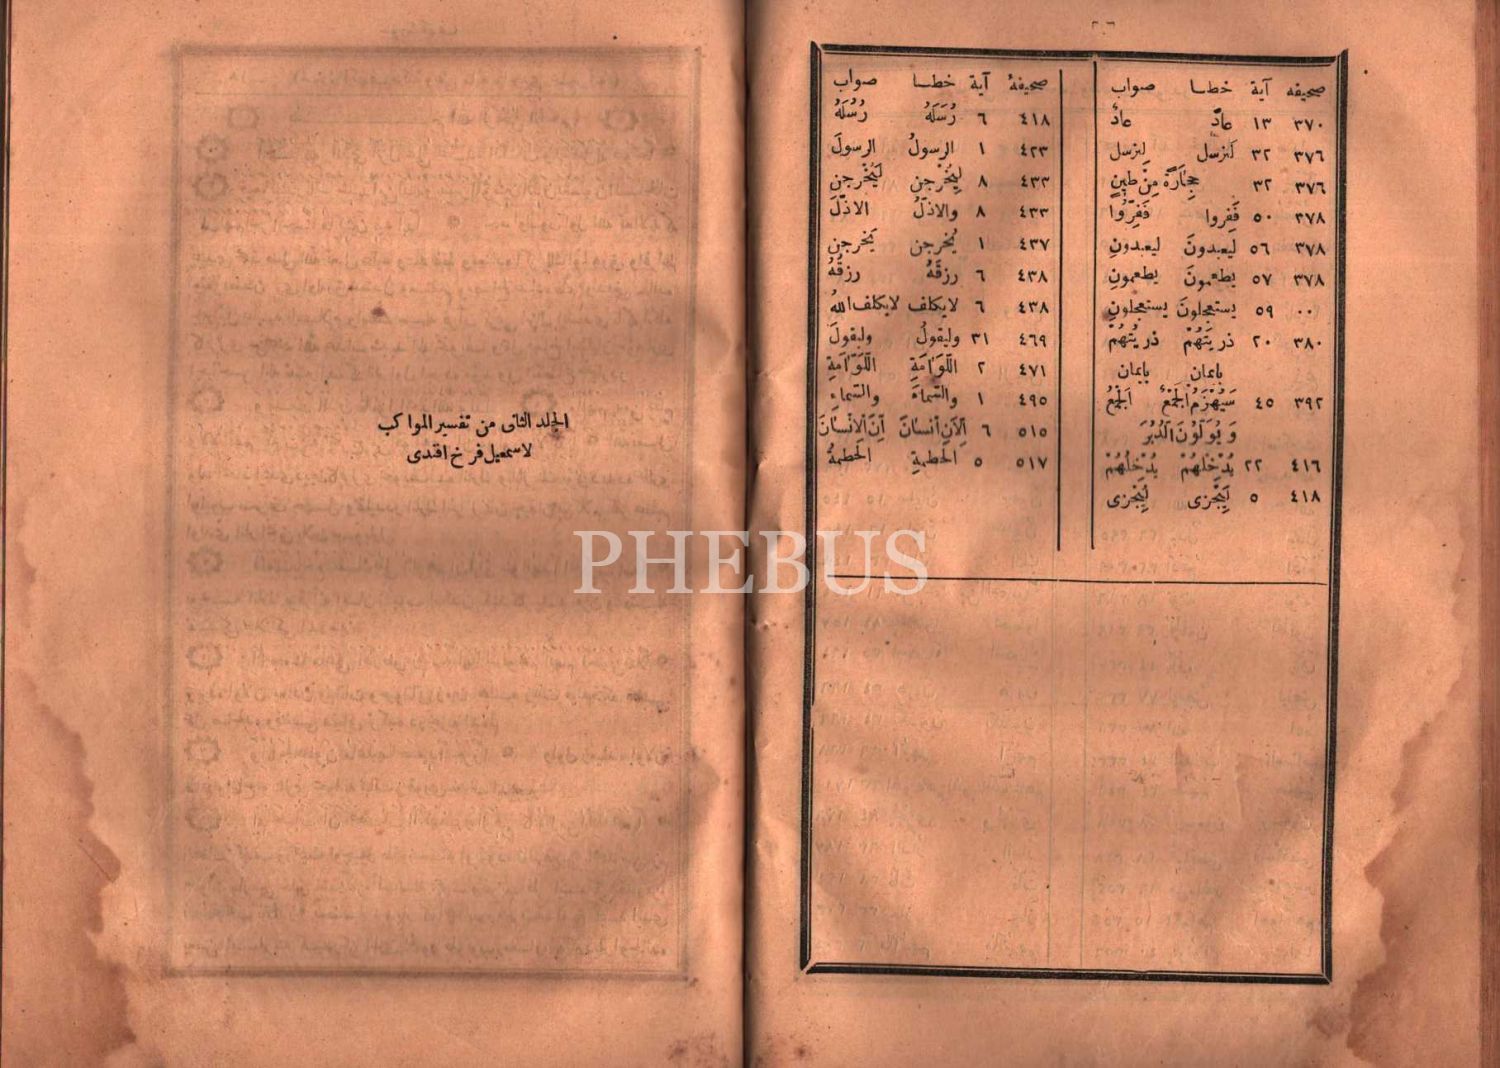 ٢٦
صحيفه آية خطا صواب
٣٧٠ ١٣ عادٌ عادٌ
٣٧٦ ٣٢ لَنرسل لِنرسل
٣٧٦ ٣٢ حِجَارَةً مِنْ طِينٍ
٣٧٨ ٥٠ فَفِروا فَفِرُّوا
٣٧٨ ٥٦ ليعبدونَ ليعبدونِ
٣٧٨ ٥٧ يطعمونَ يطعمونِ
٠٠ ٥٩ يستعجلونَ يستعجلونِ
٣٨٠ ٢٠ ذريتُهُمْ ذريتُهُمْ
بايمان بايمان
٣٩٢ ٤٥ سَيُهْزَمُ الجَمْعُ الجَمْعُ
وَيُوَلُّونَ الدُّبُرَ
٤١٦ ٢٢ يُدْخِلَهُمْ يُدْخِلُهُمْ
٤١٨ ٥ لَيَجْزى لِيَجْزى
صحيفه آية خطا صواب
٤١٨ ٦ رُسَلَهُ رُسُلَهُ
٤٢٣ ١ الرسولُ الرسولَ
٤٣٣ ٨ لِيُخْرجن لَيُخْرِجن
٤٣٣ ٨ والاذلُّ الاذلَّ
٤٣٧ ١ يُخرجن يَخرجن
٤٣٨ ٦ رزقَهُ رزقُهُ
٤٣٨ ٦ لايكلف لايكلف الله
٤٦٩ ٣١ وليقولُ وليقولَ
٤٧١ ٢ اللَّوَامَةِ اللَّوَّامَةِ
٤٩٥ ١ والسَّماءَ والسَّماءِ
٥١٥ ٦ اَلاَنِ اْنسانَ اِنَّ الْاِنْسَانَ
٥١٧ ٥ الحطمةِ الحطمةُ
الجلد الثانى من تفسير المواكب
لاسمعيل فرخ افندى
PHEBUS